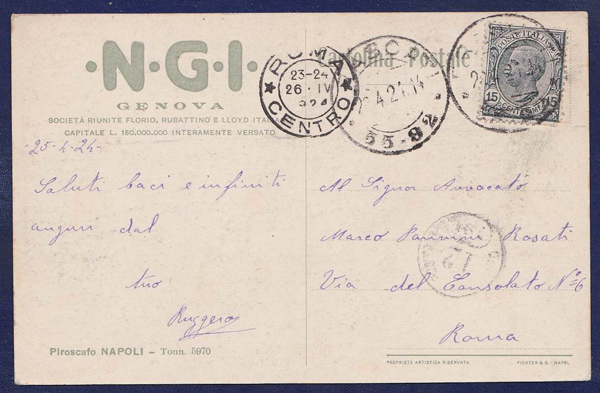 ·N·G·I·
GENOVA
SOCIETÀ RIUNITE FLORIO, RUBATTINO E LLOYD ITA
CAPITALE L. 150.000.000 INTERAMENTE VERSATO
-25-4-24-
Saluti baci e infiniti
auguri dal
tuo
Ruggero
Piroscafo NAPOLI – Tonn. 5970
Cartolina Postale
ROMA
23-24
26·IV
924
CENTRO
4.24.14
55-82
POSTE ITALIANE
15 CENT. 15
Al Signor Avvocato
Marco Rosati
Via del Consolato N° 6
Roma
PROPRIETÀ ARTISTICA RISERVATA
RICHTER & C. - NAPOLI